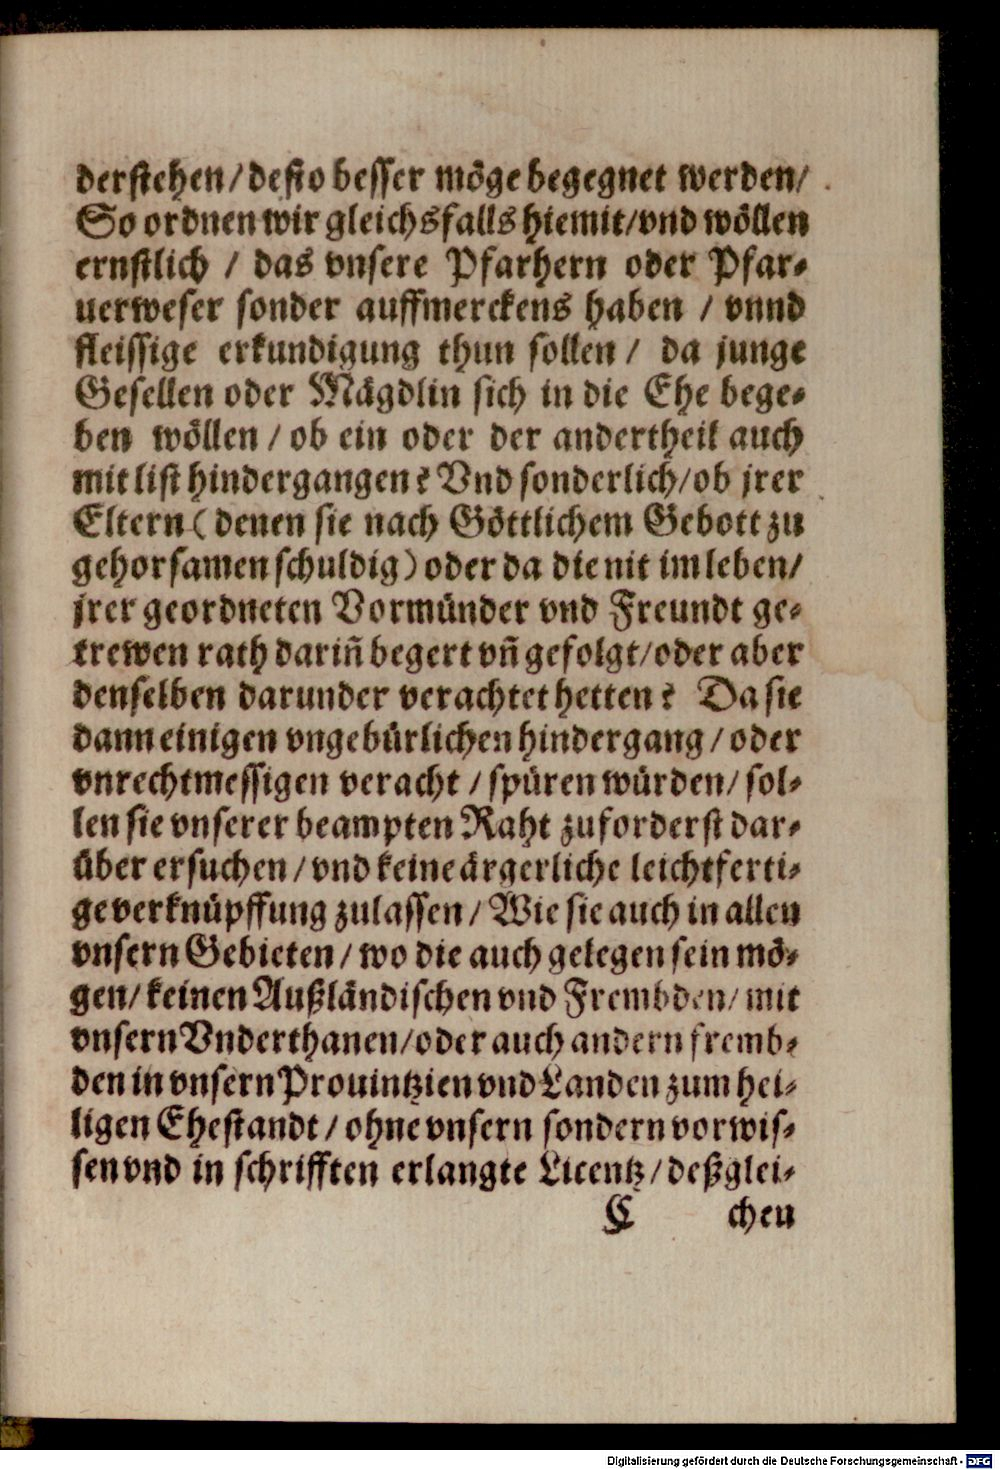 derstehen / desto besser möge begegnet werden /
So ordnen wir gleichsfalls hiemit / vnd wöllen
ernstlich / das vnsere Pfarhern oder Pfar-
uerweser sonder auffmerckens haben / vnnd
fleissige erkundigung thun sollen / da junge
Gesellen oder Mägdlin sich in die Ehe bege-
ben wöllen / ob ein oder der andertheil auch
mit list hindergangen? Vnd sonderlich / ob jrer
Eltern ( denen sie nach Göttlichem Gebott zu
gehorsamen schuldig ) oder da die nit im leben /
jrer geordneten Vormünder vnd Freundt ge-
trewen rath dariñ begert vñ gefolgt / oder aber
denselben darunder verachtet hetten? Da sie
dann einigen vngebürlichen hindergang / oder
vnrechtmessigen veracht / spüren würden / sol-
len sie vnserer beampten Raht zuforderst dar-
über ersuchen / vnd keine ärgerliche leichtferti-
ge verknüpffung zulassen / Wie sie auch in allen
vnsern Gebieten / wo die auch gelegen sein mö-
gen / keinen Außländischen vnd Frembden / mit
vnsern Vnderthanen / oder auch andern fremb-
den in vnsern Prouintzien vnd Landen zum hei-
ligen Ehestandt / ohne vnsern sondern vorwis-
sen vnd in schrifften erlangte Licentz / deßglei-
C chen
Digitalisierung gefördert durch die Deutsche Forschungsgemeinschaft - DFG